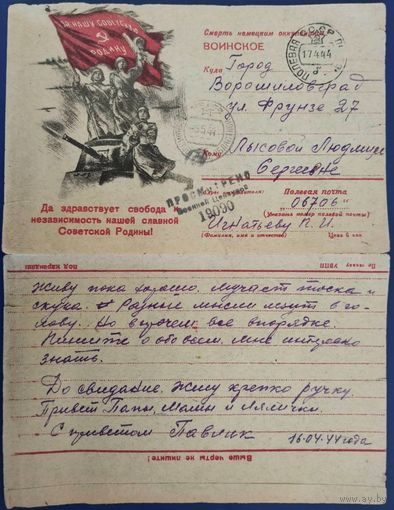 ЗА НАШУ СОВЕТСКУЮ
РОДИНУ!
Смерть немецким оккупантам
ВОИНСКОЕ
Куда Город
Ворошиловград
ул. Фрунзе 27
Кому Лысовой Людмиле
Сергеевне
ПОЛЕВАЯ
17 4 44
ПРОСМОТРЕНО
Военной Цензурой
19090
Полевая почта
06706
(Указать номер полевой почты)
Игнатьеву П. И.
(Фамилия, имя и отчество)
Цена 5 коп.
Да здравствует свобода и
независимость нашей славной
Советской Родины!
Живу пока хорошо. Мучает тоска и
скука. Разные мысли лезут в го-
лову. Но впрочем все впорядке.
Пишите обо всем. Мне интересно
знать.
До свидание. Жму крепко ручку.
Привет Папы, Мамы и Лялички.
С приветом Павлик 16.04.44 года
Выше черты не пишите!